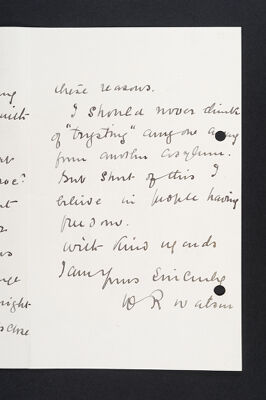 these reasons.
I should never think
of "trysting" anyone away
from another asylum.
But short of this I
believe in people having
freedom.
With kind regards
I am
yours Sincerely
W R Watson